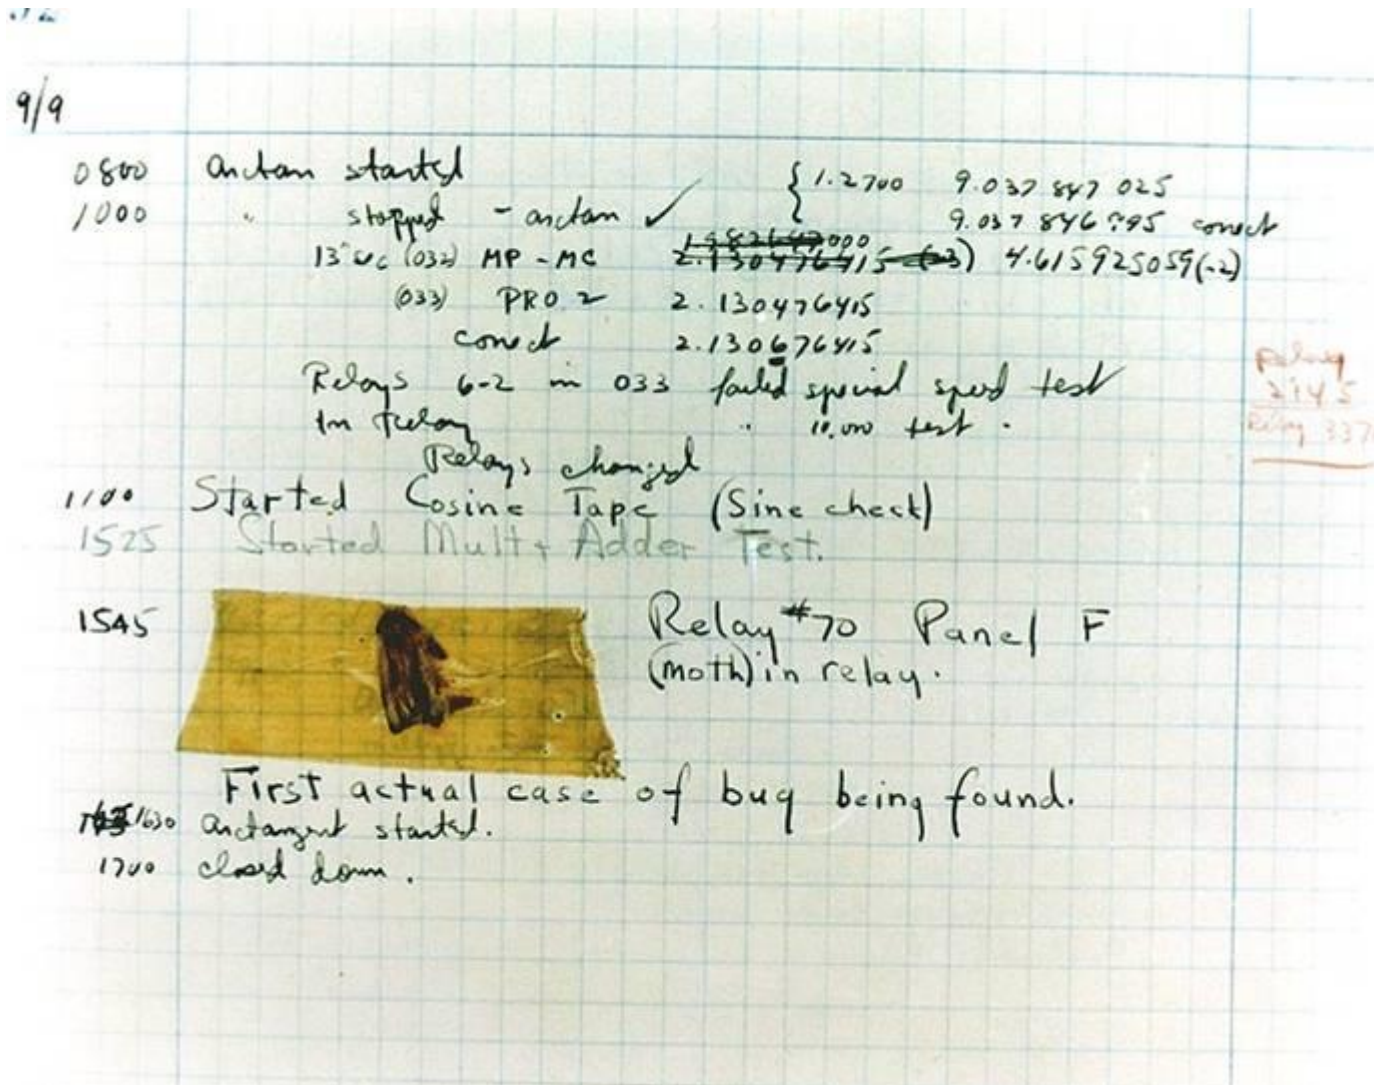 9/9
0800 arctan started { 1.2700 9.037 847 025
1000 " stopped - arctan ✓ 9.037 846 995 correct
13"sec (032) MP - MC 2.130476415 (-3) 4.615925059(-2)
(033) PRO 2 2.130476415
correct 2.130676415
Relays 6-2 in 033 failed special speed test
In Relay " 10,000 test .
Relays changed
Relay
2145
Relay 337
1100 Started Cosine Tape (Sine check)
1525 Started Mult + Adder Test.
1545 Relay #70 Panel F
(moth) in relay.
First actual case of bug being found.
1630 arctangent started.
1700 closed down.